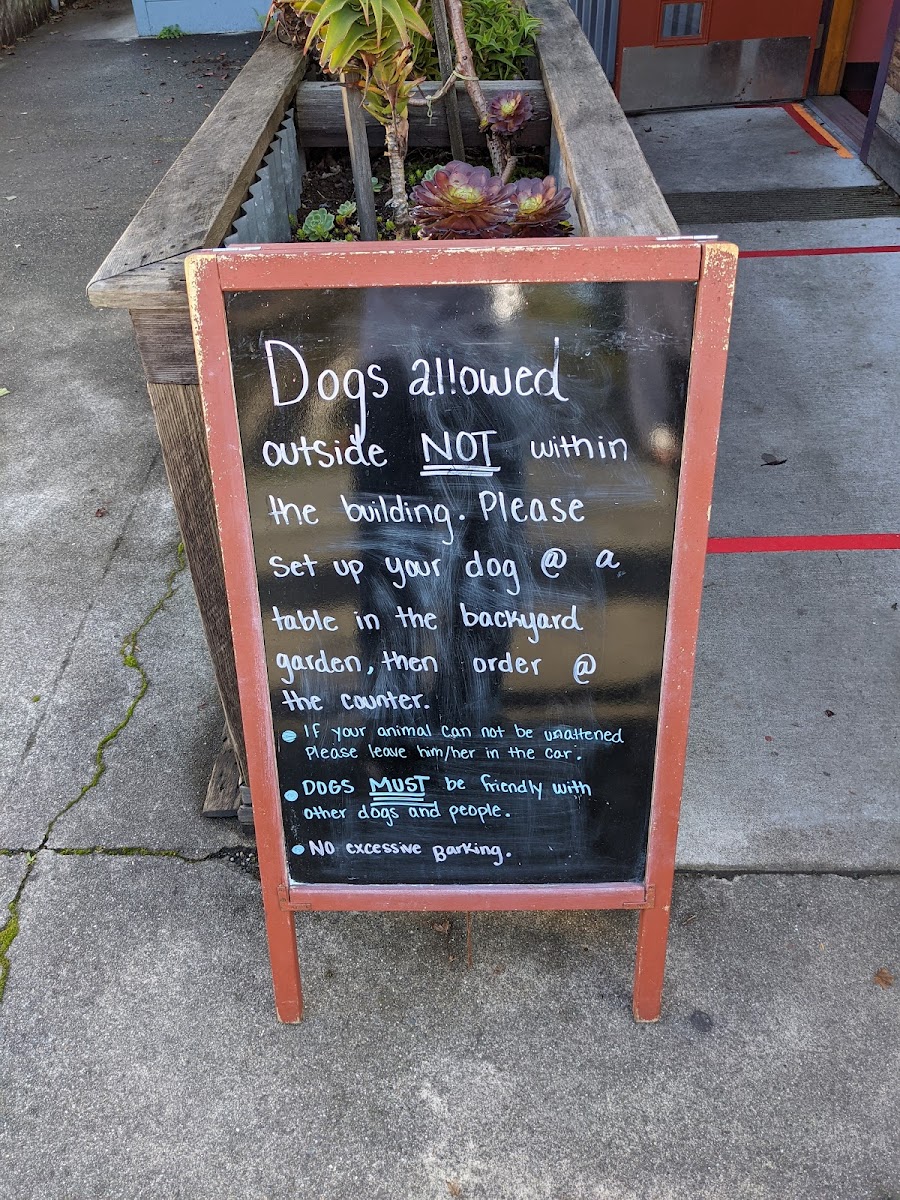 Dogs allowed
outside NOT within
the building. Please
set up your dog @ a
table in the backyard
garden, then order @
the counter.
• If your animal can not be unattened
Please leave him/her in the car.
• DOGS MUST be friendly with
other dogs and people.
• No excessive Barking.